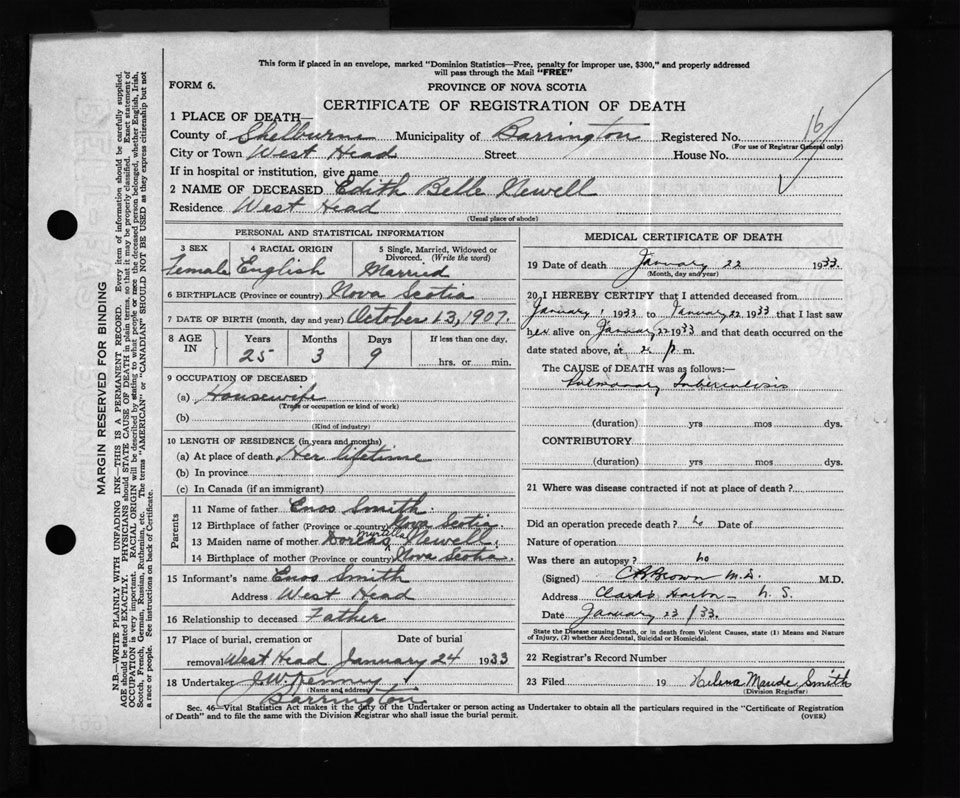 This form if placed in an envelope, marked "Dominion Statistics—Free, penalty for improper use, $300," and properly addressed
will pass through the Mail "FREE"
FORM 6.
PROVINCE OF NOVA SCOTIA
CERTIFICATE OF REGISTRATION OF DEATH
1 PLACE OF DEATH—
County of Shelburne Municipality of Barrington Registered No. 16
(For use of Registrar General only)
City or Town West Head Street House No.
If in hospital or institution, give name
2 NAME OF DECEASED Edith Belle Newell
Residence West Head
(Usual place of abode)
PERSONAL AND STATISTICAL INFORMATION
3 SEX 4 RACIAL ORIGIN 5 Single, Married, Widowed or
Divorced. (Write the word)
Female English Married
6 BIRTHPLACE (Province or country) Nova Scotia
7 DATE OF BIRTH (month, day and year) October 13, 1907.
8 AGE IN Years Months Days If less than one day,
25 3 9 hrs. or min.
9 OCCUPATION OF DECEASED
(a) Housewife
(Trade or occupation or kind of work)
(b)
(Kind of industry)
10 LENGTH OF RESIDENCE (in years and months)
(a) At place of death Her lifetime
(b) In province
(c) In Canada (if an immigrant)
Parents
11 Name of father Enos Smith.
12 Birthplace of father (Province or country) Nova Scotia.
13 Maiden name of mother Dorcas Newell.
14 Birthplace of mother (Province or country) Nova Scotia.
15 Informant's name Enos Smith
Address West Head
16 Relationship to deceased Father
17 Place of burial, cremation or Date of burial
removal West Head January 24 1933
18 Undertaker J.W. Kenney
(Name and address)
Barrington
MEDICAL CERTIFICATE OF DEATH
19 Date of death January 22 1933.
(Month, day and year)
20 I HEREBY CERTIFY that I attended deceased from
January 1 1933 to January 22 1933 that I last saw
her alive on January 22 1933 and that death occurred on the
date stated above, at 2 p. m.
The CAUSE OF DEATH was as follows:—
Pulmonary Tuberculosis
(duration) yrs mos dys.
CONTRIBUTORY
(duration) yrs mos dys.
21 Where was disease contracted if not at place of death?
Did an operation precede death? no Date of
Nature of operation
Was there an autopsy? no
(Signed) Brown M.D. M.D.
Address Clarks Harbor — N. S.
Date January 23/33.
State the Disease causing Death, or in death from Violent Causes, state (1) Means and Nature
of Injury, (2) whether Accidental, Suicidal or Homicidal.
22 Registrar's Record Number
23 Filed 19 Helena Maude Smith
(Division Registrar)
Sec. 46—Vital Statistics Act makes it the duty of the Undertaker or person acting as Undertaker to obtain all the particulars required in the "Certificate of Registration
of Death" and to file the same with the Division Registrar who shall issue the burial permit.
(OVER)
MARGIN RESERVED FOR BINDING
N.B.—WRITE PLAINLY WITH UNFADING INK—THIS IS A PERMANENT RECORD. Every item of information should be carefully supplied.
AGE should be stated EXACTLY. PHYSICIANS should STATE CAUSE OF DEATH in plain terms, so that it may be properly classified. Exact statement of
OCCUPATION is very important. RACIAL ORIGIN will be described by stating to what people or race the deceased person belonged, whether English, Irish,
Scotch, French, German, Russian, Ruthenian, etc. The terms "AMERICAN" or "CANADIAN" SHOULD NOT BE USED as they express citizenship but not
a race or people. See instructions on back of Certificate.